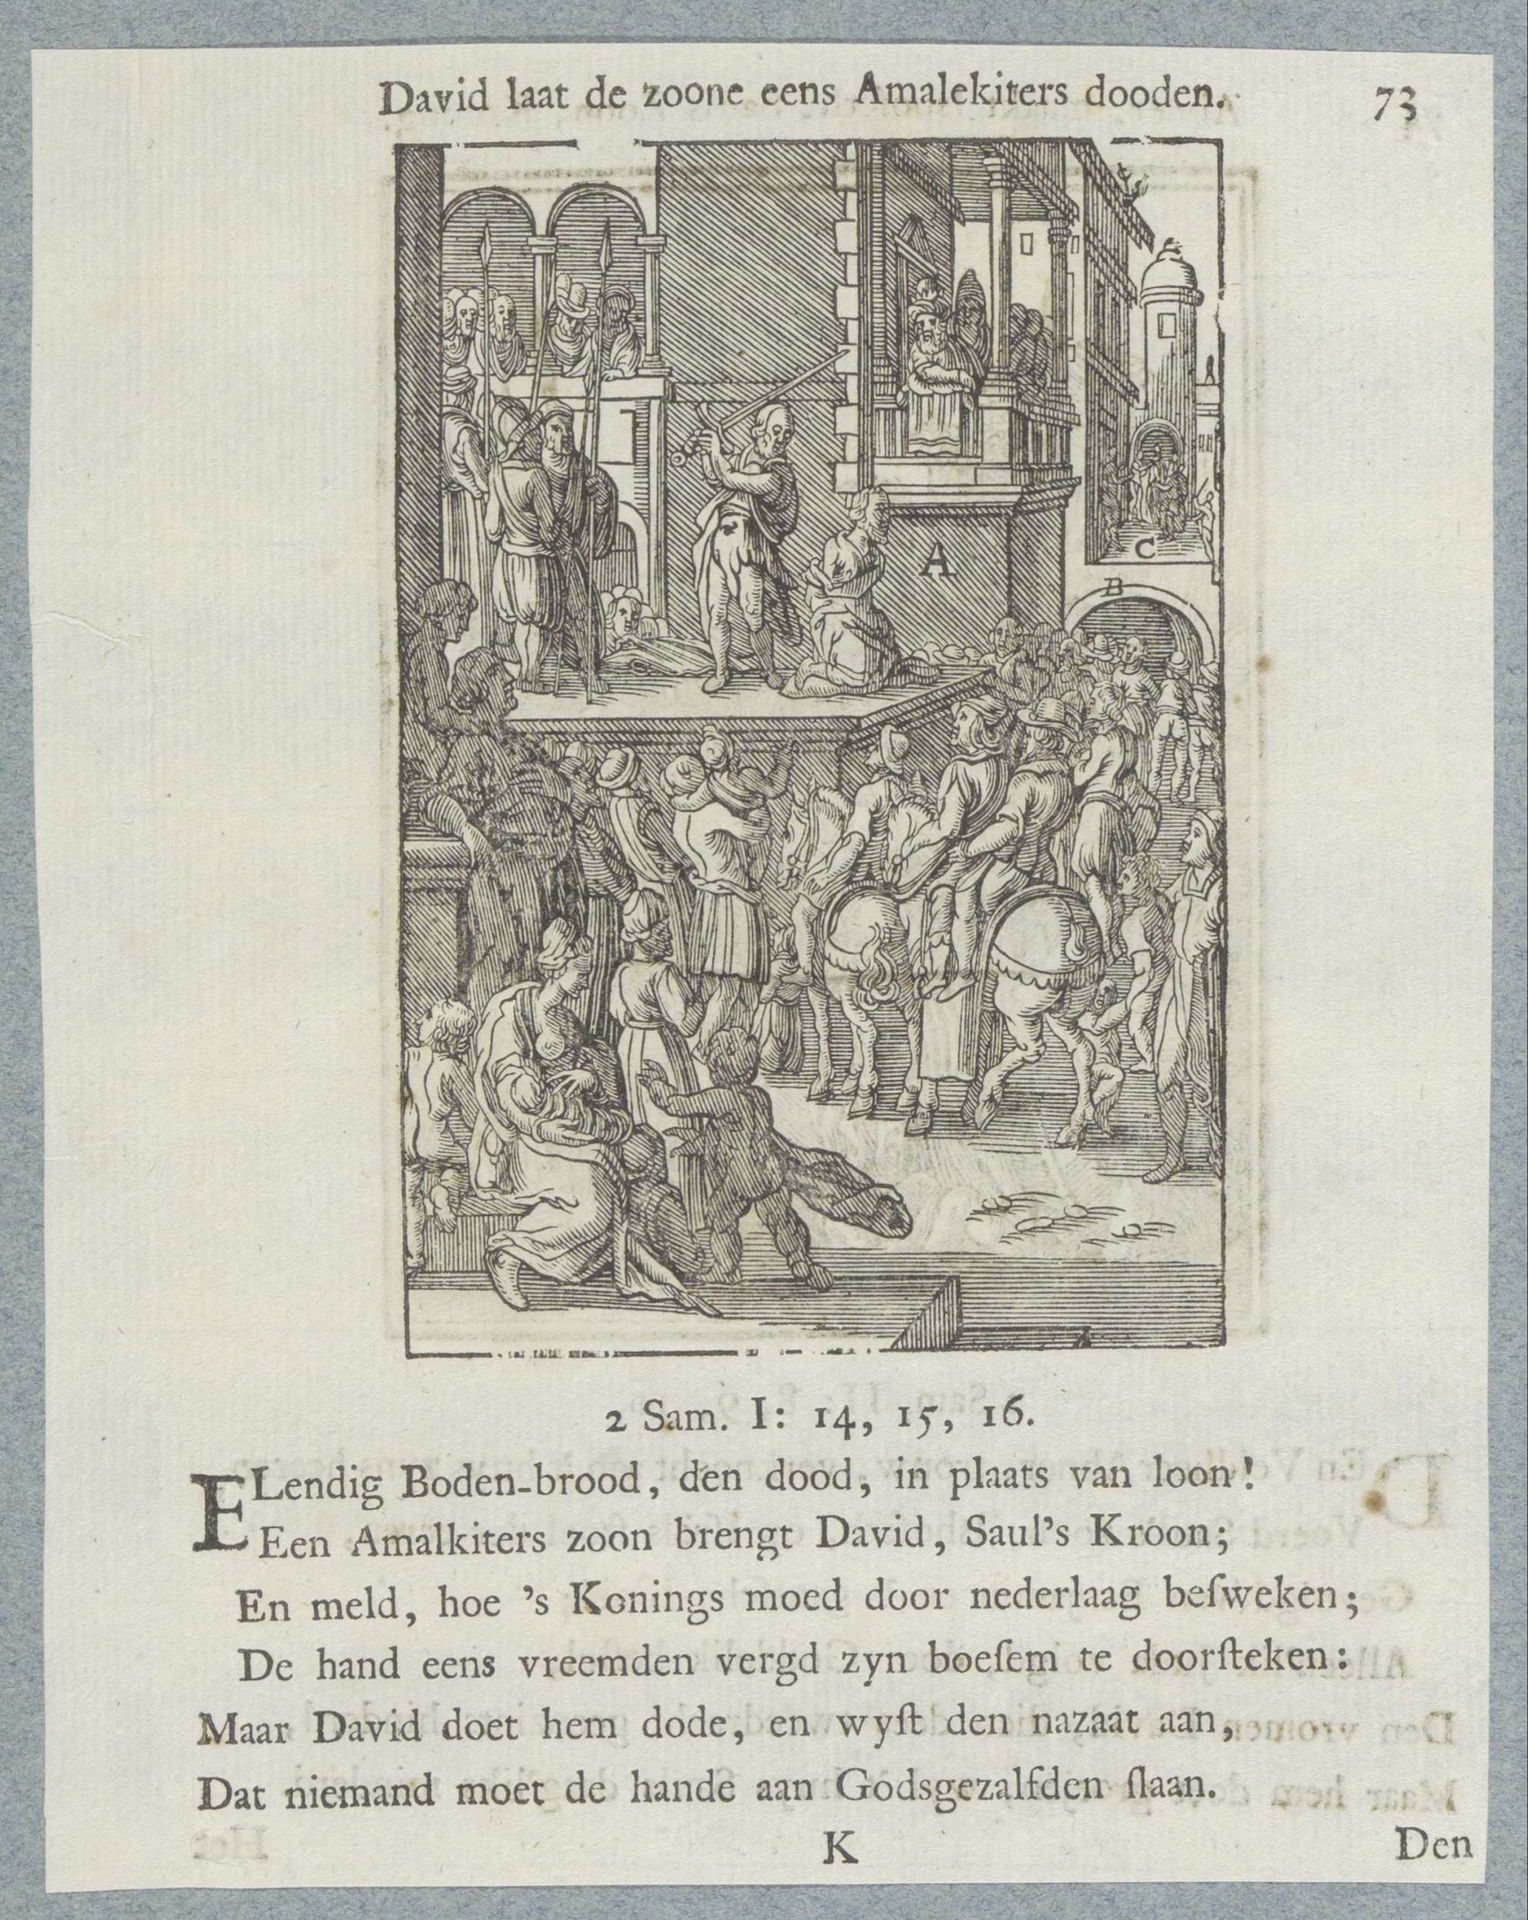 David laat de zoone eens Amalekiters dooden. 73
A
B
C
2 Sam. I: 14, 15, 16.
ELendig Boden-brood, den dood, in plaats van loon!
Een Amalkiters zoon brengt David, Saul's Kroon;
En meld, hoe 's Konings moed door nederlaag beſweken;
De hand eens vreemden vergd zyn boeſem te doorſteken:
Maar David doet hem dode, en wyſt den nazaat aan,
Dat niemand moet de hande aan Godsgezalfden ſlaan.
K Den